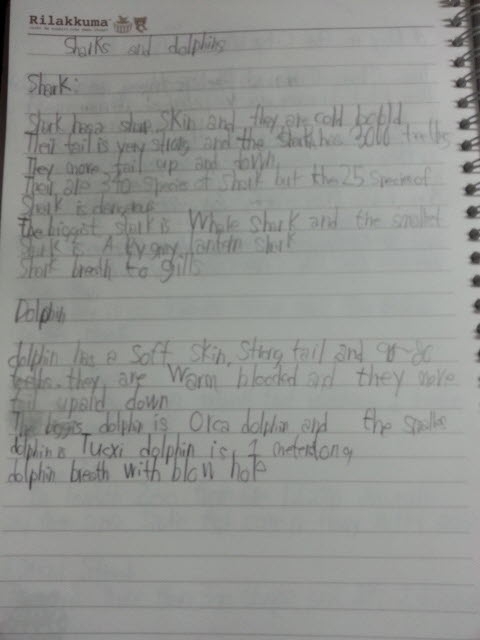 Rilakkuma
Sharks and dolphins
Shark:
Shark has a sharp skin and they are cold
Their tail is very strong and the shark has 3000 teeths
They move tail up and down.
Their are 370 species of Shark but the 25 species of
Shark is dangerous
The biggest shark is Whale Shark and the smallest
Shark is A lantern shark
Shark breath to gills
Dolphin
dolphin has a soft skin, Strong tail and
teeths. they are Warm blooded and they move
tail upand down
The biggest dolphin is Orca dolphin and the smalles
dolphin is Tucxi dolphin is 1 meter long
dolphin breath with blow hole